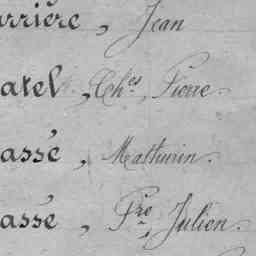 arrière, Jean
atel, Ches Pierre.
assé, Mathurin.
assé, Pre Julien.